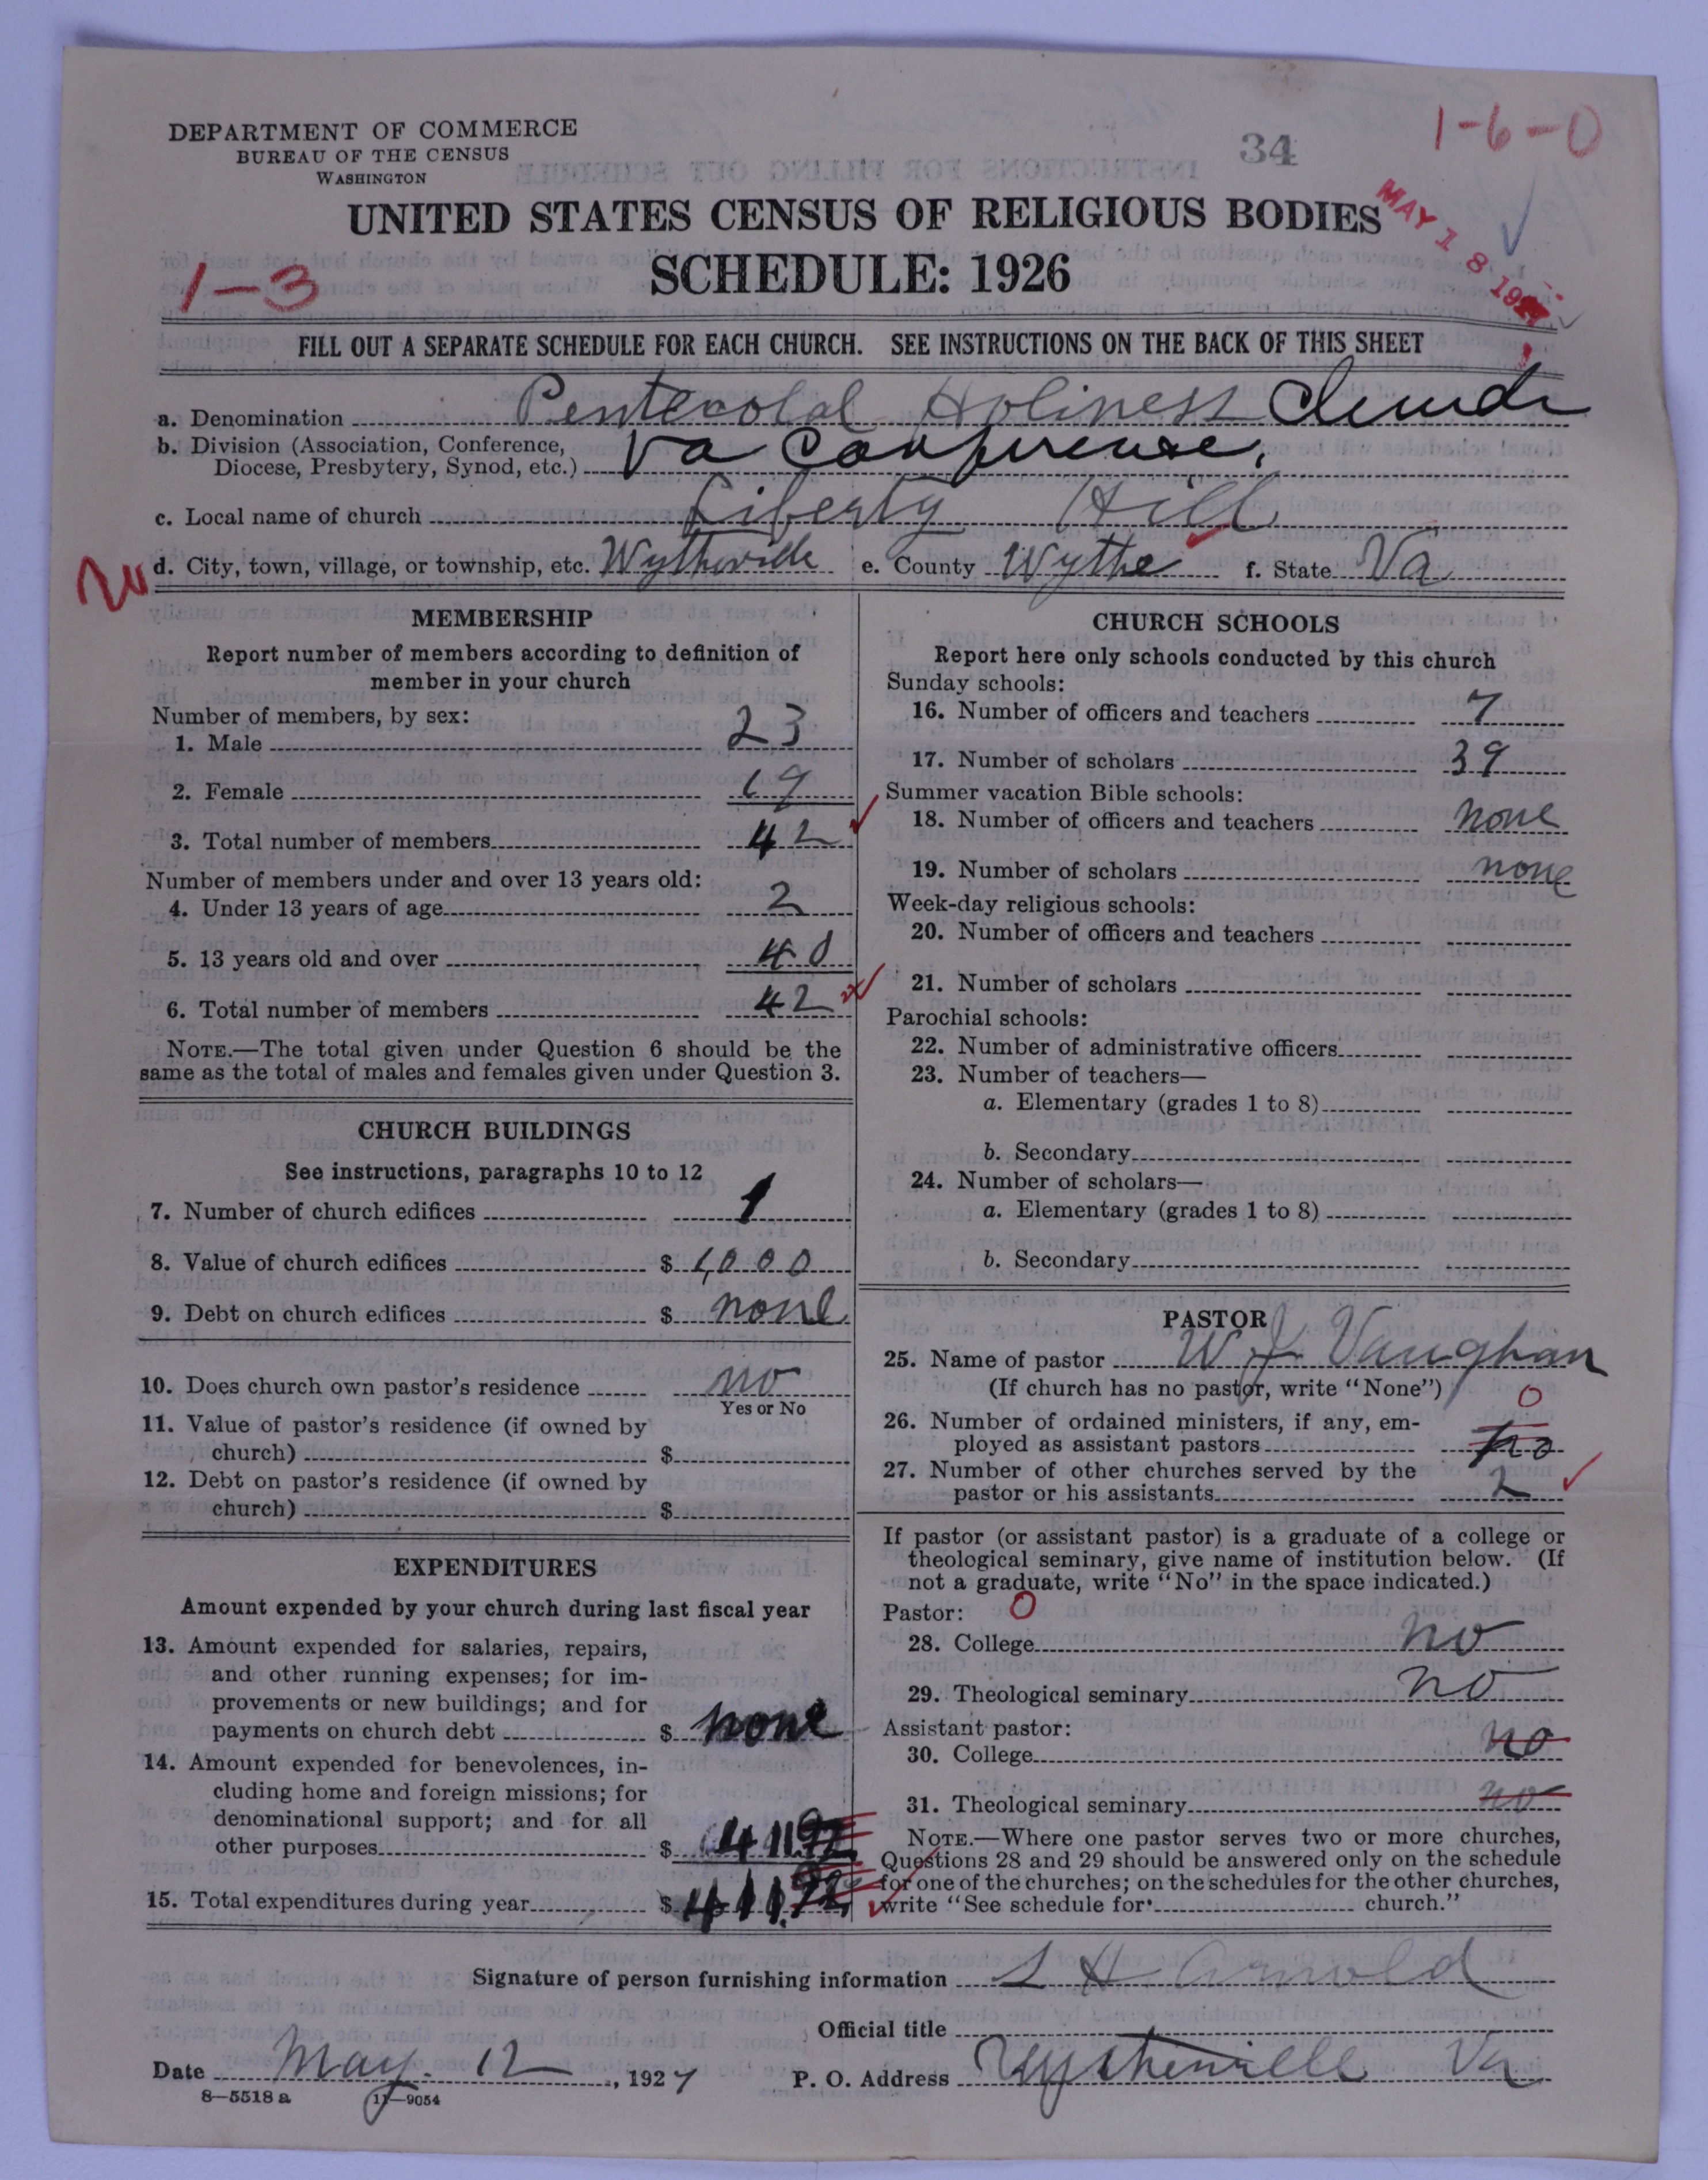 DEPARTMENT OF COMMERCE
BUREAU OF THE CENSUS
WASHINGTON
34
1-6-0
UNITED STATES CENSUS OF RELIGIOUS BODIES
MAY 18 192
SCHEDULE: 1926
1-3
FILL OUT A SEPARATE SCHEDULE FOR EACH CHURCH. SEE INSTRUCTIONS ON THE BACK OF THIS SHEET
a. Denomination Pentecotal Holiness Church
b. Division (Association, Conference,
Diocese, Presbytery, Synod, etc.) Va Conference.
c. Local name of church Liberty Hill
d. City, town, village, or township, etc. Wytheville e. County Wythe f. State Va
MEMBERSHIP
Report number of members according to definition of
member in your church
Number of members, by sex:
1. Male 23
2. Female 19
3. Total number of members 42
Number of members under and over 13 years old:
4. Under 13 years of age 2
5. 13 years old and over 40
6. Total number of members 42
NOTE.—The total given under Question 6 should be the
same as the total of males and females given under Question 3.
CHURCH BUILDINGS
See instructions, paragraphs 10 to 12
7. Number of church edifices 1
8. Value of church edifices $ 1,000
9. Debt on church edifices $ none
10. Does church own pastor's residence no
Yes or No
11. Value of pastor's residence (if owned by
church) $
12. Debt on pastor's residence (if owned by
church) $
EXPENDITURES
Amount expended by your church during last fiscal year
13. Amount expended for salaries, repairs,
and other running expenses; for im-
provements or new buildings; and for
payments on church debt $ none
14. Amount expended for benevolences, in-
cluding home and foreign missions; for
denominational support; and for all
other purposes $ 411.92
15. Total expenditures during year $ 411.92
CHURCH SCHOOLS
Report here only schools conducted by this church
Sunday schools:
16. Number of officers and teachers 7
17. Number of scholars 39
Summer vacation Bible schools:
18. Number of officers and teachers none
19. Number of scholars none
Week-day religious schools:
20. Number of officers and teachers
21. Number of scholars
Parochial schools:
22. Number of administrative officers
23. Number of teachers—
a. Elementary (grades 1 to 8)
b. Secondary
24. Number of scholars—
a. Elementary (grades 1 to 8)
b. Secondary
PASTOR
25. Name of pastor W J Vaughan
(If church has no pastor, write "None")
0
26. Number of ordained ministers, if any, em-
ployed as assistant pastors no
27. Number of other churches served by the
pastor or his assistants 2
If pastor (or assistant pastor) is a graduate of a college or
theological seminary, give name of institution below. (If
not a graduate, write "No" in the space indicated.)
Pastor: 0
28. College no
29. Theological seminary no
Assistant pastor:
30. College no
31. Theological seminary no
NOTE.—Where one pastor serves two or more churches,
Questions 28 and 29 should be answered only on the schedule
for one of the churches; on the schedules for the other churches,
write "See schedule for church."
Signature of person furnishing information S H Arnold
Official title
Date May 12, 1927 P. O. Address Wytheville Va
8—5518 a 11—9054